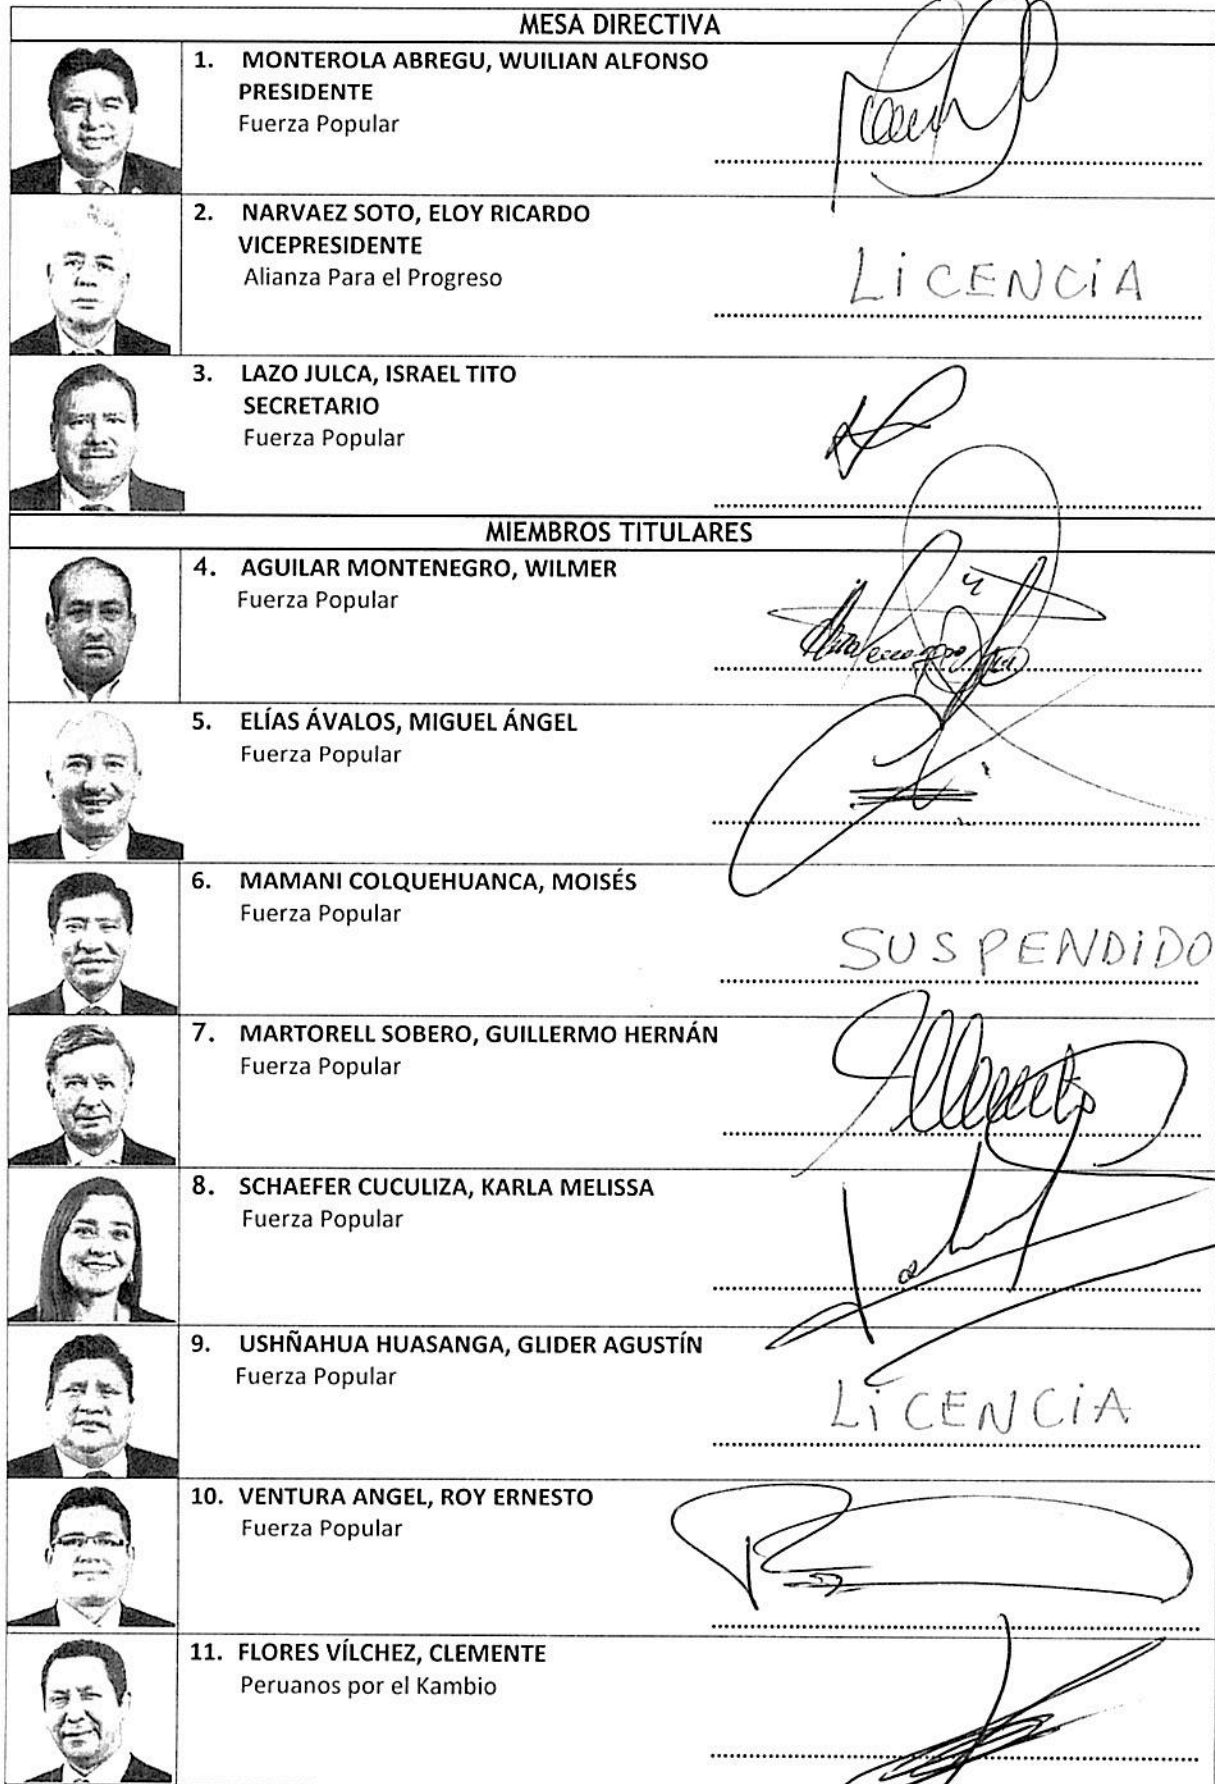 MESA DIRECTIVA
1. MONTEROLA ABREGU, WUILIAN ALFONSO
PRESIDENTE
Fuerza Popular
2. NARVAEZ SOTO, ELOY RICARDO
VICEPRESIDENTE
Alianza Para el Progreso
LiCENCiA
3. LAZO JULCA, ISRAEL TITO
SECRETARIO
Fuerza Popular
MIEMBROS TITULARES
4. AGUILAR MONTENEGRO, WILMER
Fuerza Popular
5. ELÍAS ÁVALOS, MIGUEL ÁNGEL
Fuerza Popular
6. MAMANI COLQUEHUANCA, MOISÉS
Fuerza Popular
SUSPENDiDO
7. MARTORELL SOBERO, GUILLERMO HERNÁN
Fuerza Popular
8. SCHAEFER CUCULIZA, KARLA MELISSA
Fuerza Popular
9. USHÑAHUA HUASANGA, GLIDER AGUSTÍN
Fuerza Popular
LiCENCiA
10. VENTURA ANGEL, ROY ERNESTO
Fuerza Popular
11. FLORES VÍLCHEZ, CLEMENTE
Peruanos por el Kambio